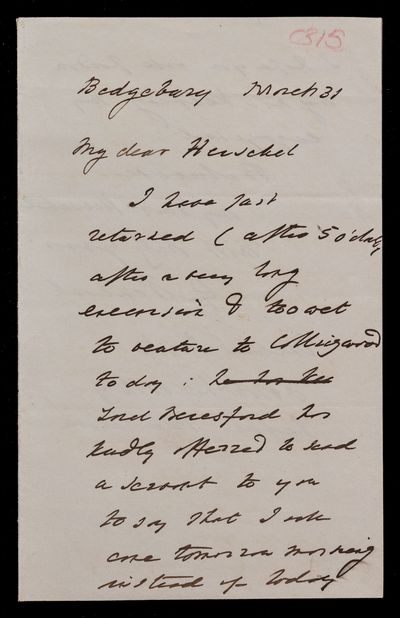 C315
Bedgebury March 31
My dear Herschel
I have just
returned (after 5 o'clock,
after a very long
excursion & too wet
to venture to Collingwood
today : he has
Lord Beresford has
kindly offered to send
a servant to you
to say that I will
come tomorrow morning
instead of today